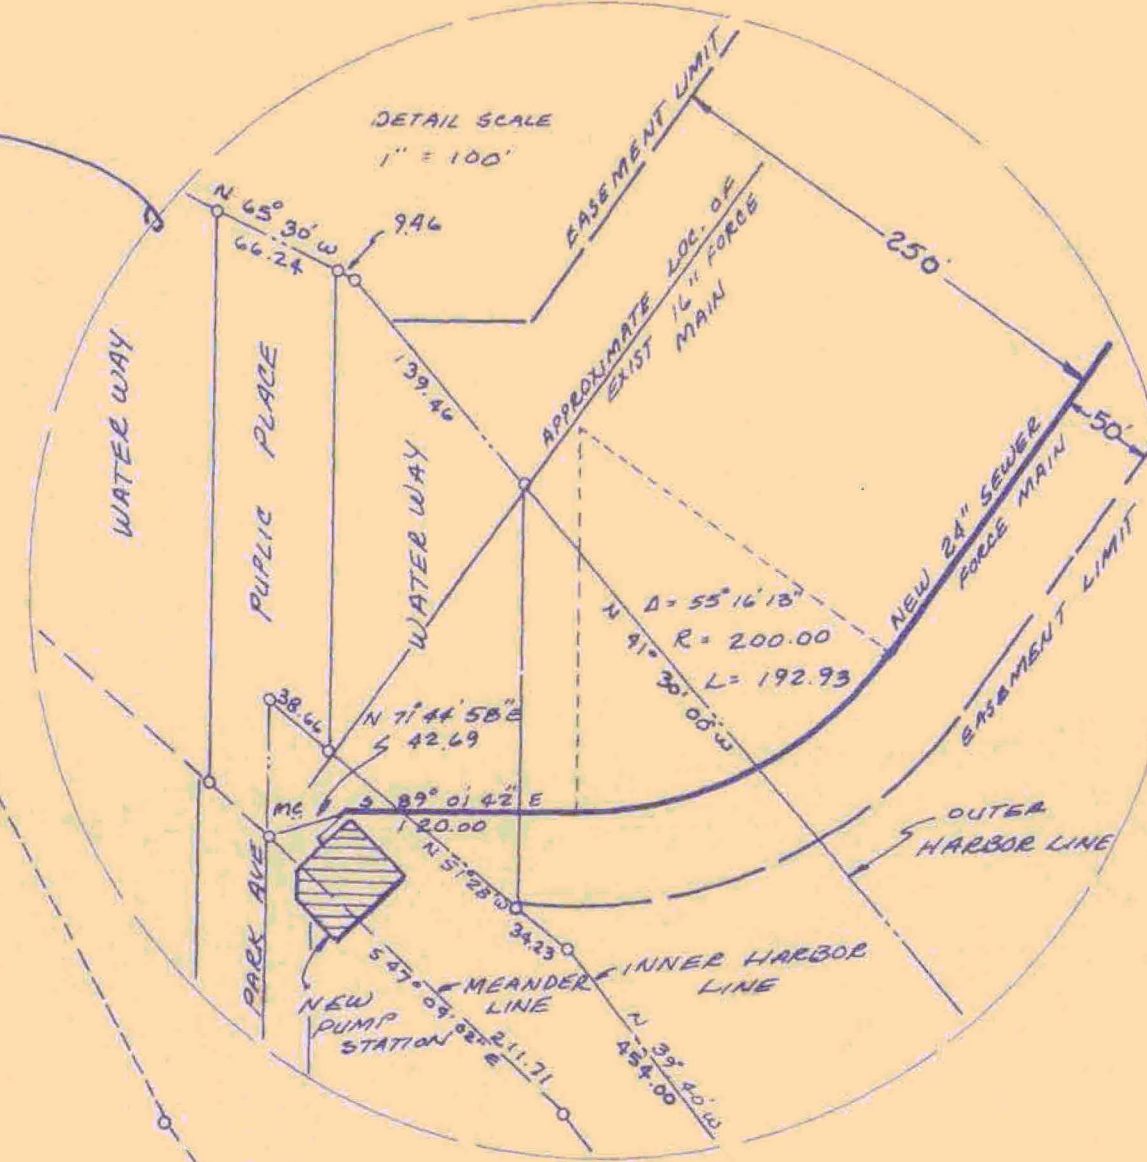 DETAIL SCALE
1" = 100'
EASEMENT LIMIT
N 65° 30' W
66.24
9.46
250'
APPROXIMATE LOC. OF
EXIST 16" FORCE
MAIN
139.46
WATER WAY
PUPLIC PLACE
WATER WAY
50'
NEW 24" SEWER
FORCE MAIN
EASEMENT LIMIT
Δ = 55° 16' 13"
R = 200.00
L = 192.93
N 41° 30' 00" W
38.66
N 71° 44' 58" E
42.69
MC
S 89° 01' 42" E
120.00
N 51° 28' W
34.23
OUTER
HARBOR LINE
PARK AVE
INNER HARBOR
LINE
MEANDER
LINE
S 47° 04' 02" E
211.71
NEW
PUMP
STATION
N 39° 40' W
454.00